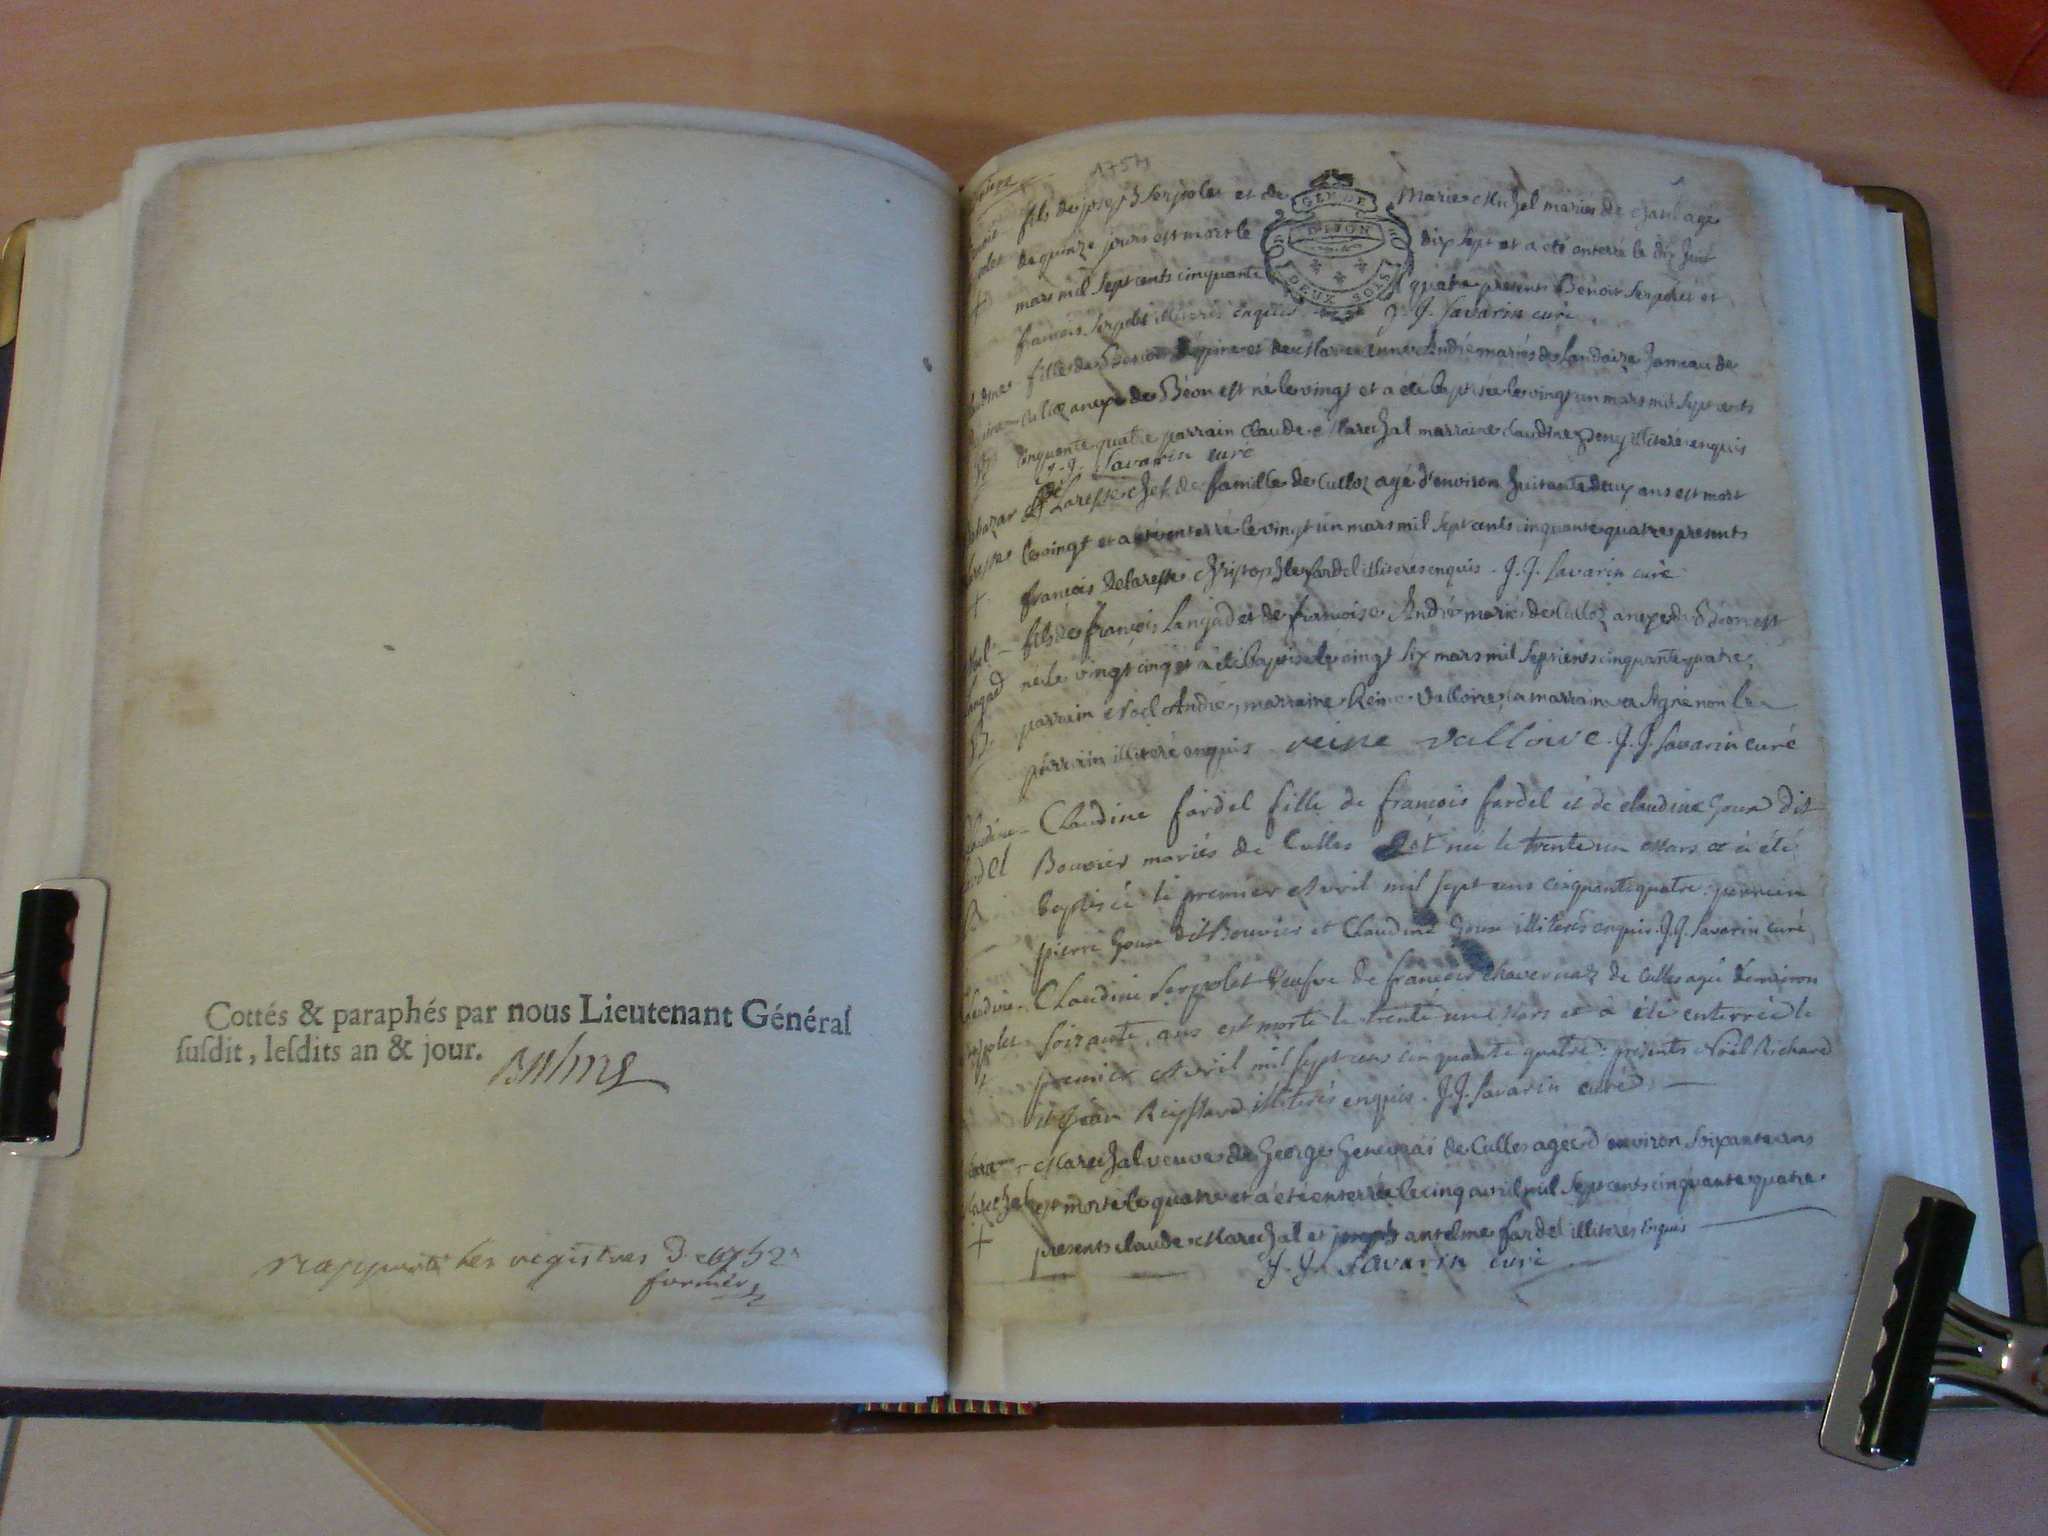 Cottés & paraphés par nous Lieutenant Général
ſuſdit, leſdits an & jour.
les registres de 1752
1754
GEN DE
DIJON
DEUX SOLS
fils de joseph Serpolet et de Marie Michel mariés de agé
de quinze jours est mort le dix sept et a été enterré le dix huit
mars mil sept cents cinquante quatre présents Benoit Serpolet et
francois Serpolet illiterés enquis J. J. Savarin curé
fille de et de Marie Anne André mariés de Landaize hameau de
Culloz anexe de Béon est né le vingt et a été baptisée le vingt un mars mil sept cents
cinquante quatre parrain Claude Marechal marraine claudine illiteré enquis
J. J. Savarin curé
Balthazar de Laresse chef de famille de Culloz agé d'environ huitante deux ans est mort
le vingt et a été enterré le vingt un mars mil sept cents cinquante quatre presents
francois Delaresse christophle fardel illiterés enquis. J. J. Savarin curé
fils de françois Langad et de françoise André mariés de Culloz anexe de Béon est
né le vingt cinq et a été baptisé le vingt six mars mil sept cents cinquante quatre,
Langad
parrain Noel André, marraine Reine Valloire, la marraine a signé non le
B
parrain illiteré enquis reine valloire. J. J. Savarin curé
Claudine Claudine fardel fille de francois fardel et de claudine Goux dit
fardel Bouvier mariés de Culles Est née le trente un Mars et à été
B baptisée le premier Avril mil sept cens cinquante quatre: parrain
pierre Goux dit Bouvier et Claudine Goux illiterés enquis. J. J. Savarin curé
Claudine Claudine Serpolet Veufve de francois de Culles agée d'environ
Serpolet soixante ans est morte le trente un Mars et à été enterrée le
+ premier Avril mil sept cens cinquante quatre: présents Noël Richard
et Jean illiterés enquis. J. J. Savarin curé
Marechal veuve de George de Culles agée d environ soixante ans
Marechal est morte le quatre et a été enterrée le cinq avril mil sept cents cinquante quatre
+ presents claude Marechal et joseph antelme fardel illiterés enquis
J. J. Savarin curé